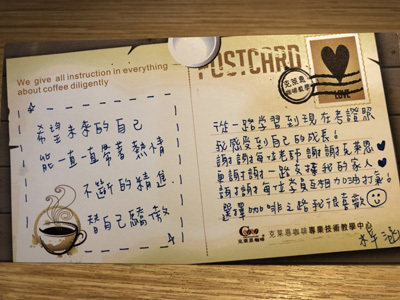 We give all instruction in everything
about coffee diligently
希望未來的自己
能一直一直帶著熱情
不斷的精進
替自己驕傲
POSTCARD
克萊思
LOVE
從一路學習到現在考證照
我感受到自己的成長!
謝謝每位老師 謝謝克萊思♥
更謝謝一路支持我的家人♥
謝謝每位學員互相加油打氣!
選擇咖啡之路我很喜歡
克萊思咖啡
克萊思咖啡專業技術教學中心